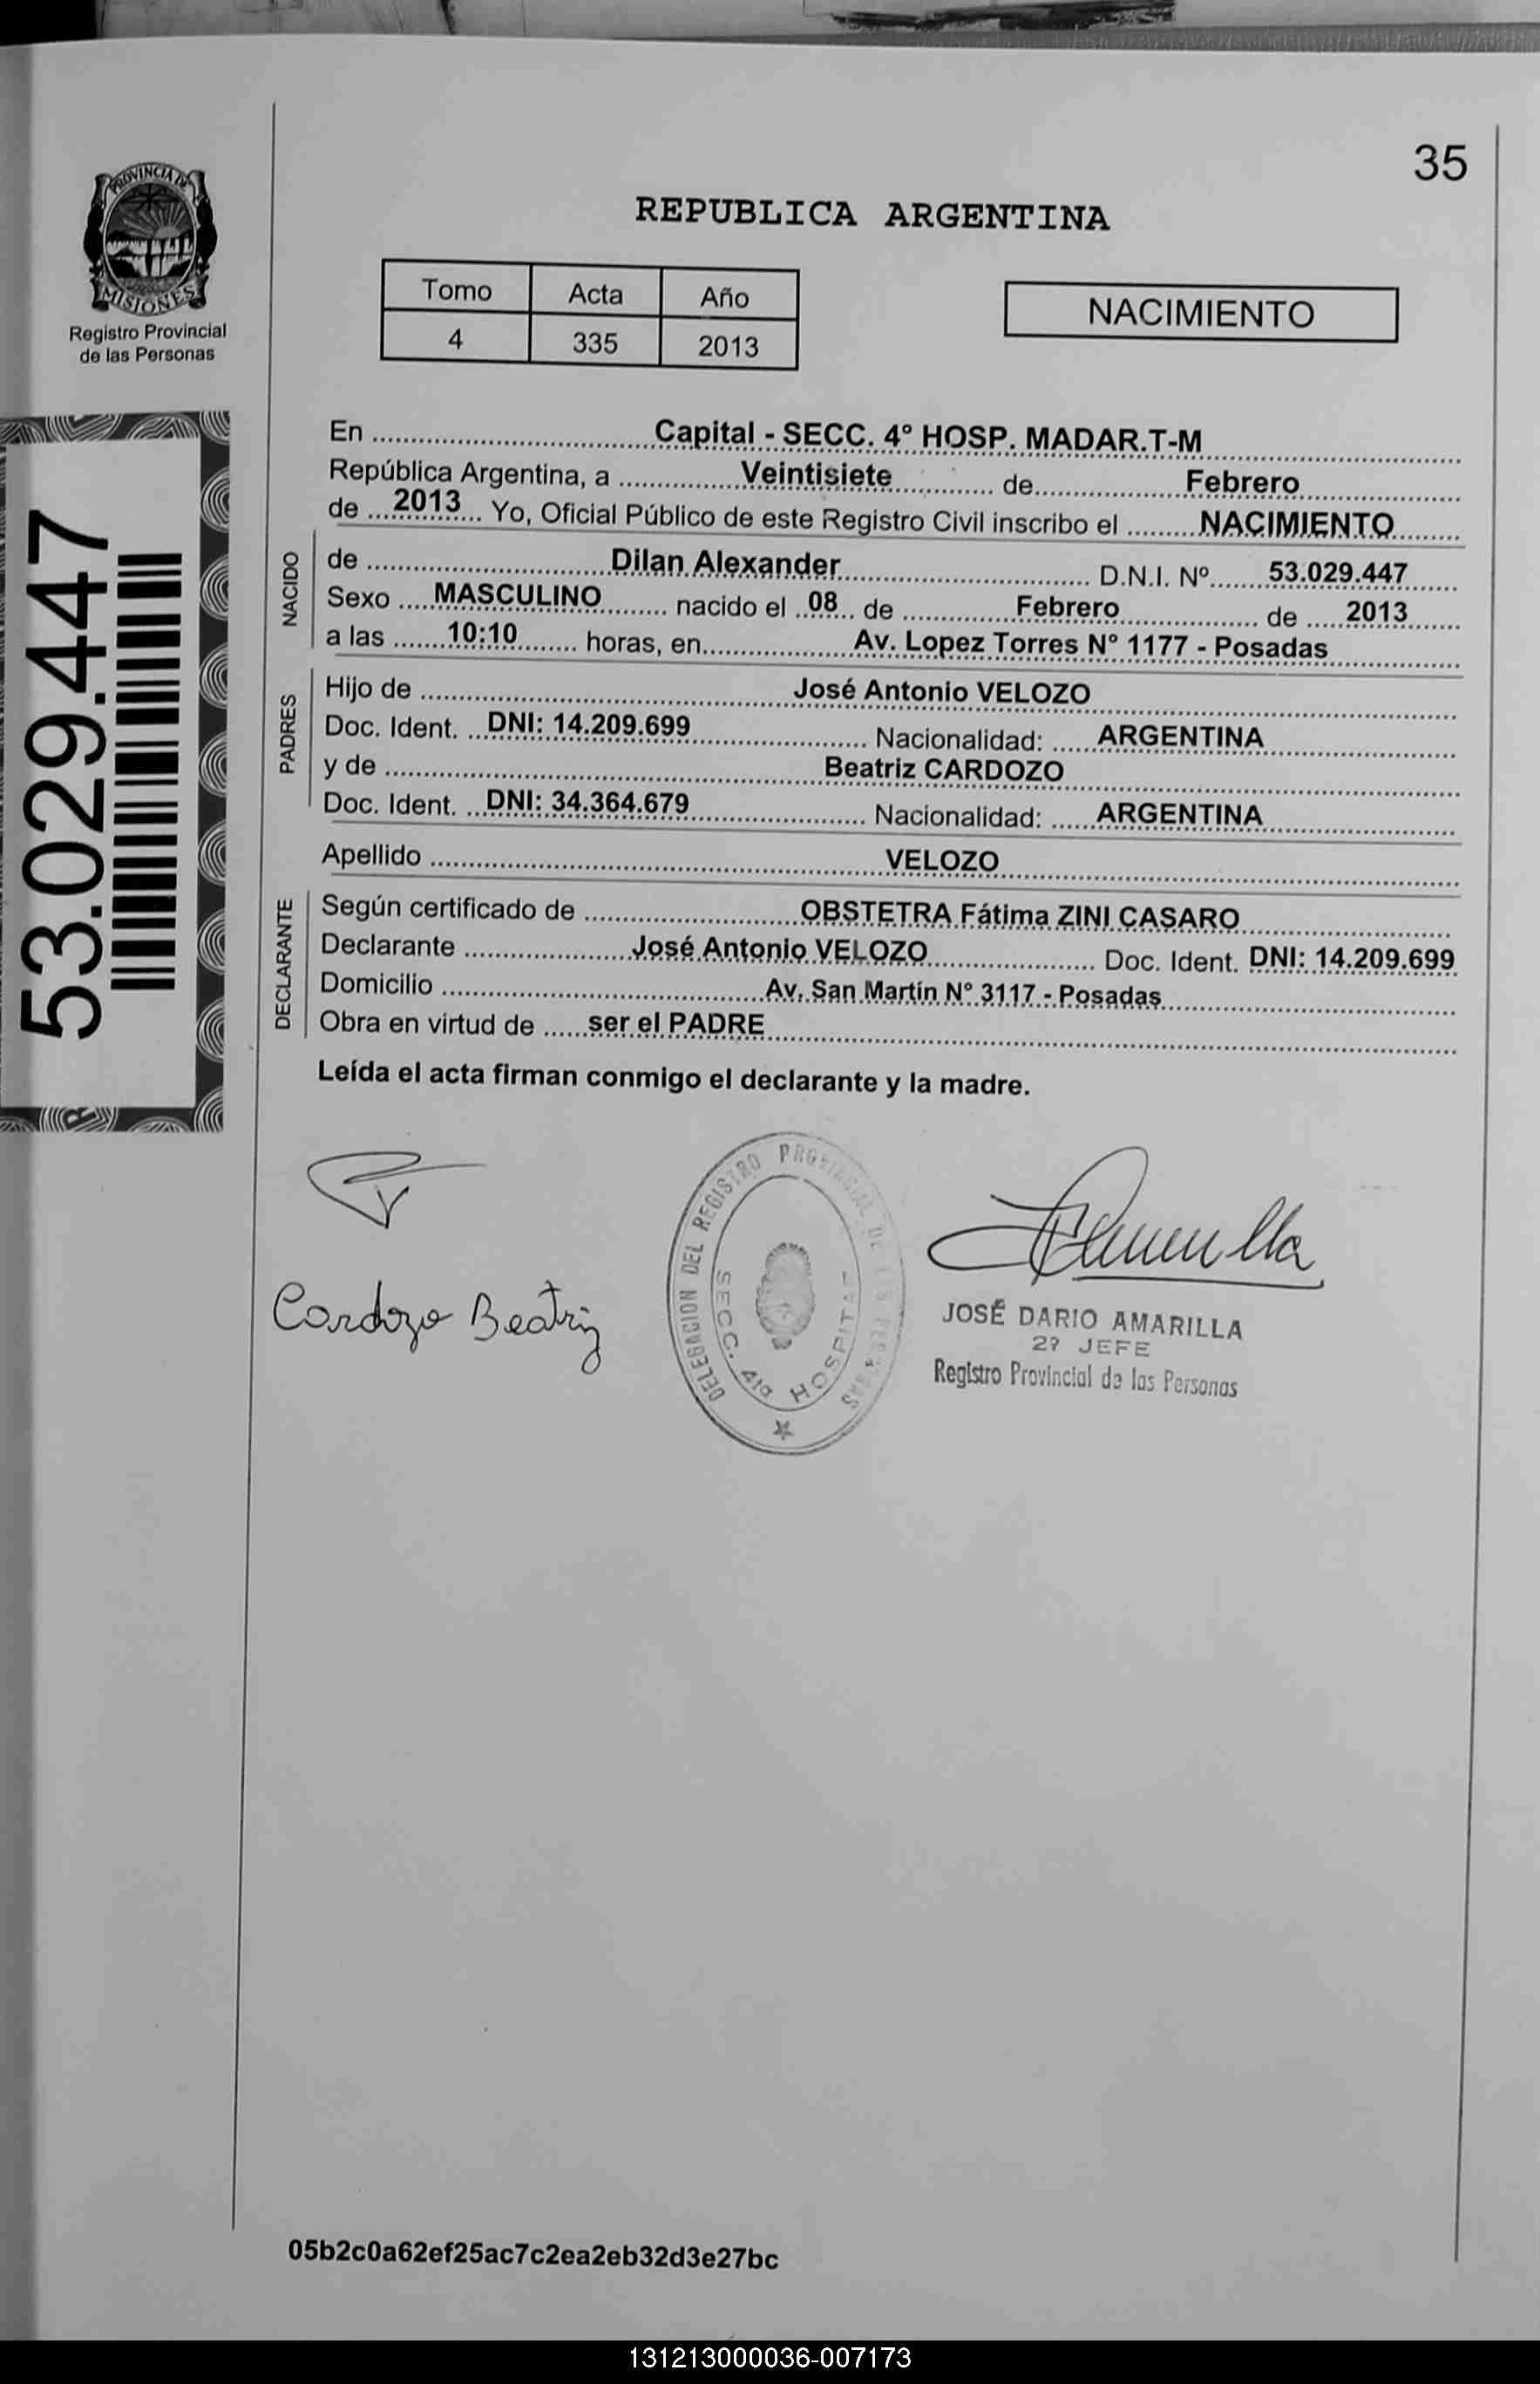 35
PROVINCIA DE
MISIONES
Registro Provincial
de las Personas
REPUBLICA ARGENTINA
Tomo Acta Año
4 335 2013
NACIMIENTO
53.029.447
En Capital - SECC. 4° HOSP. MADAR.T-M
República Argentina, a Veintisiete de Febrero
de 2013 Yo, Oficial Público de este Registro Civil inscribo el NACIMIENTO
NACIDO
de Dilan Alexander D.N.I. Nº 53.029.447
Sexo MASCULINO nacido el 08 de Febrero de 2013
a las 10:10 horas, en Av. Lopez Torres N° 1177 - Posadas
PADRES
Hijo de José Antonio VELOZO
Doc. Ident. DNI: 14.209.699 Nacionalidad: ARGENTINA
y de Beatriz CARDOZO
Doc. Ident. DNI: 34.364.679 Nacionalidad: ARGENTINA
Apellido VELOZO
DECLARANTE
Según certificado de OBSTETRA Fátima ZINI CASARO
Declarante José Antonio VELOZO Doc. Ident. DNI: 14.209.699
Domicilio Av. San Martín N° 3117 - Posadas
Obra en virtud de ser el PADRE
Leída el acta firman conmigo el declarante y la madre.
Cardozo Beatriz
DELEGACION DEL REGISTRO PROVINCIAL DE LAS PERSONAS
SECC. 4ta HOSPITAL
Amarilla
JOSÉ DARIO AMARILLA
2º JEFE
Registro Provincial de las Personas
05b2c0a62ef25ac7c2ea2eb32d3e27bc
131213000036-007173